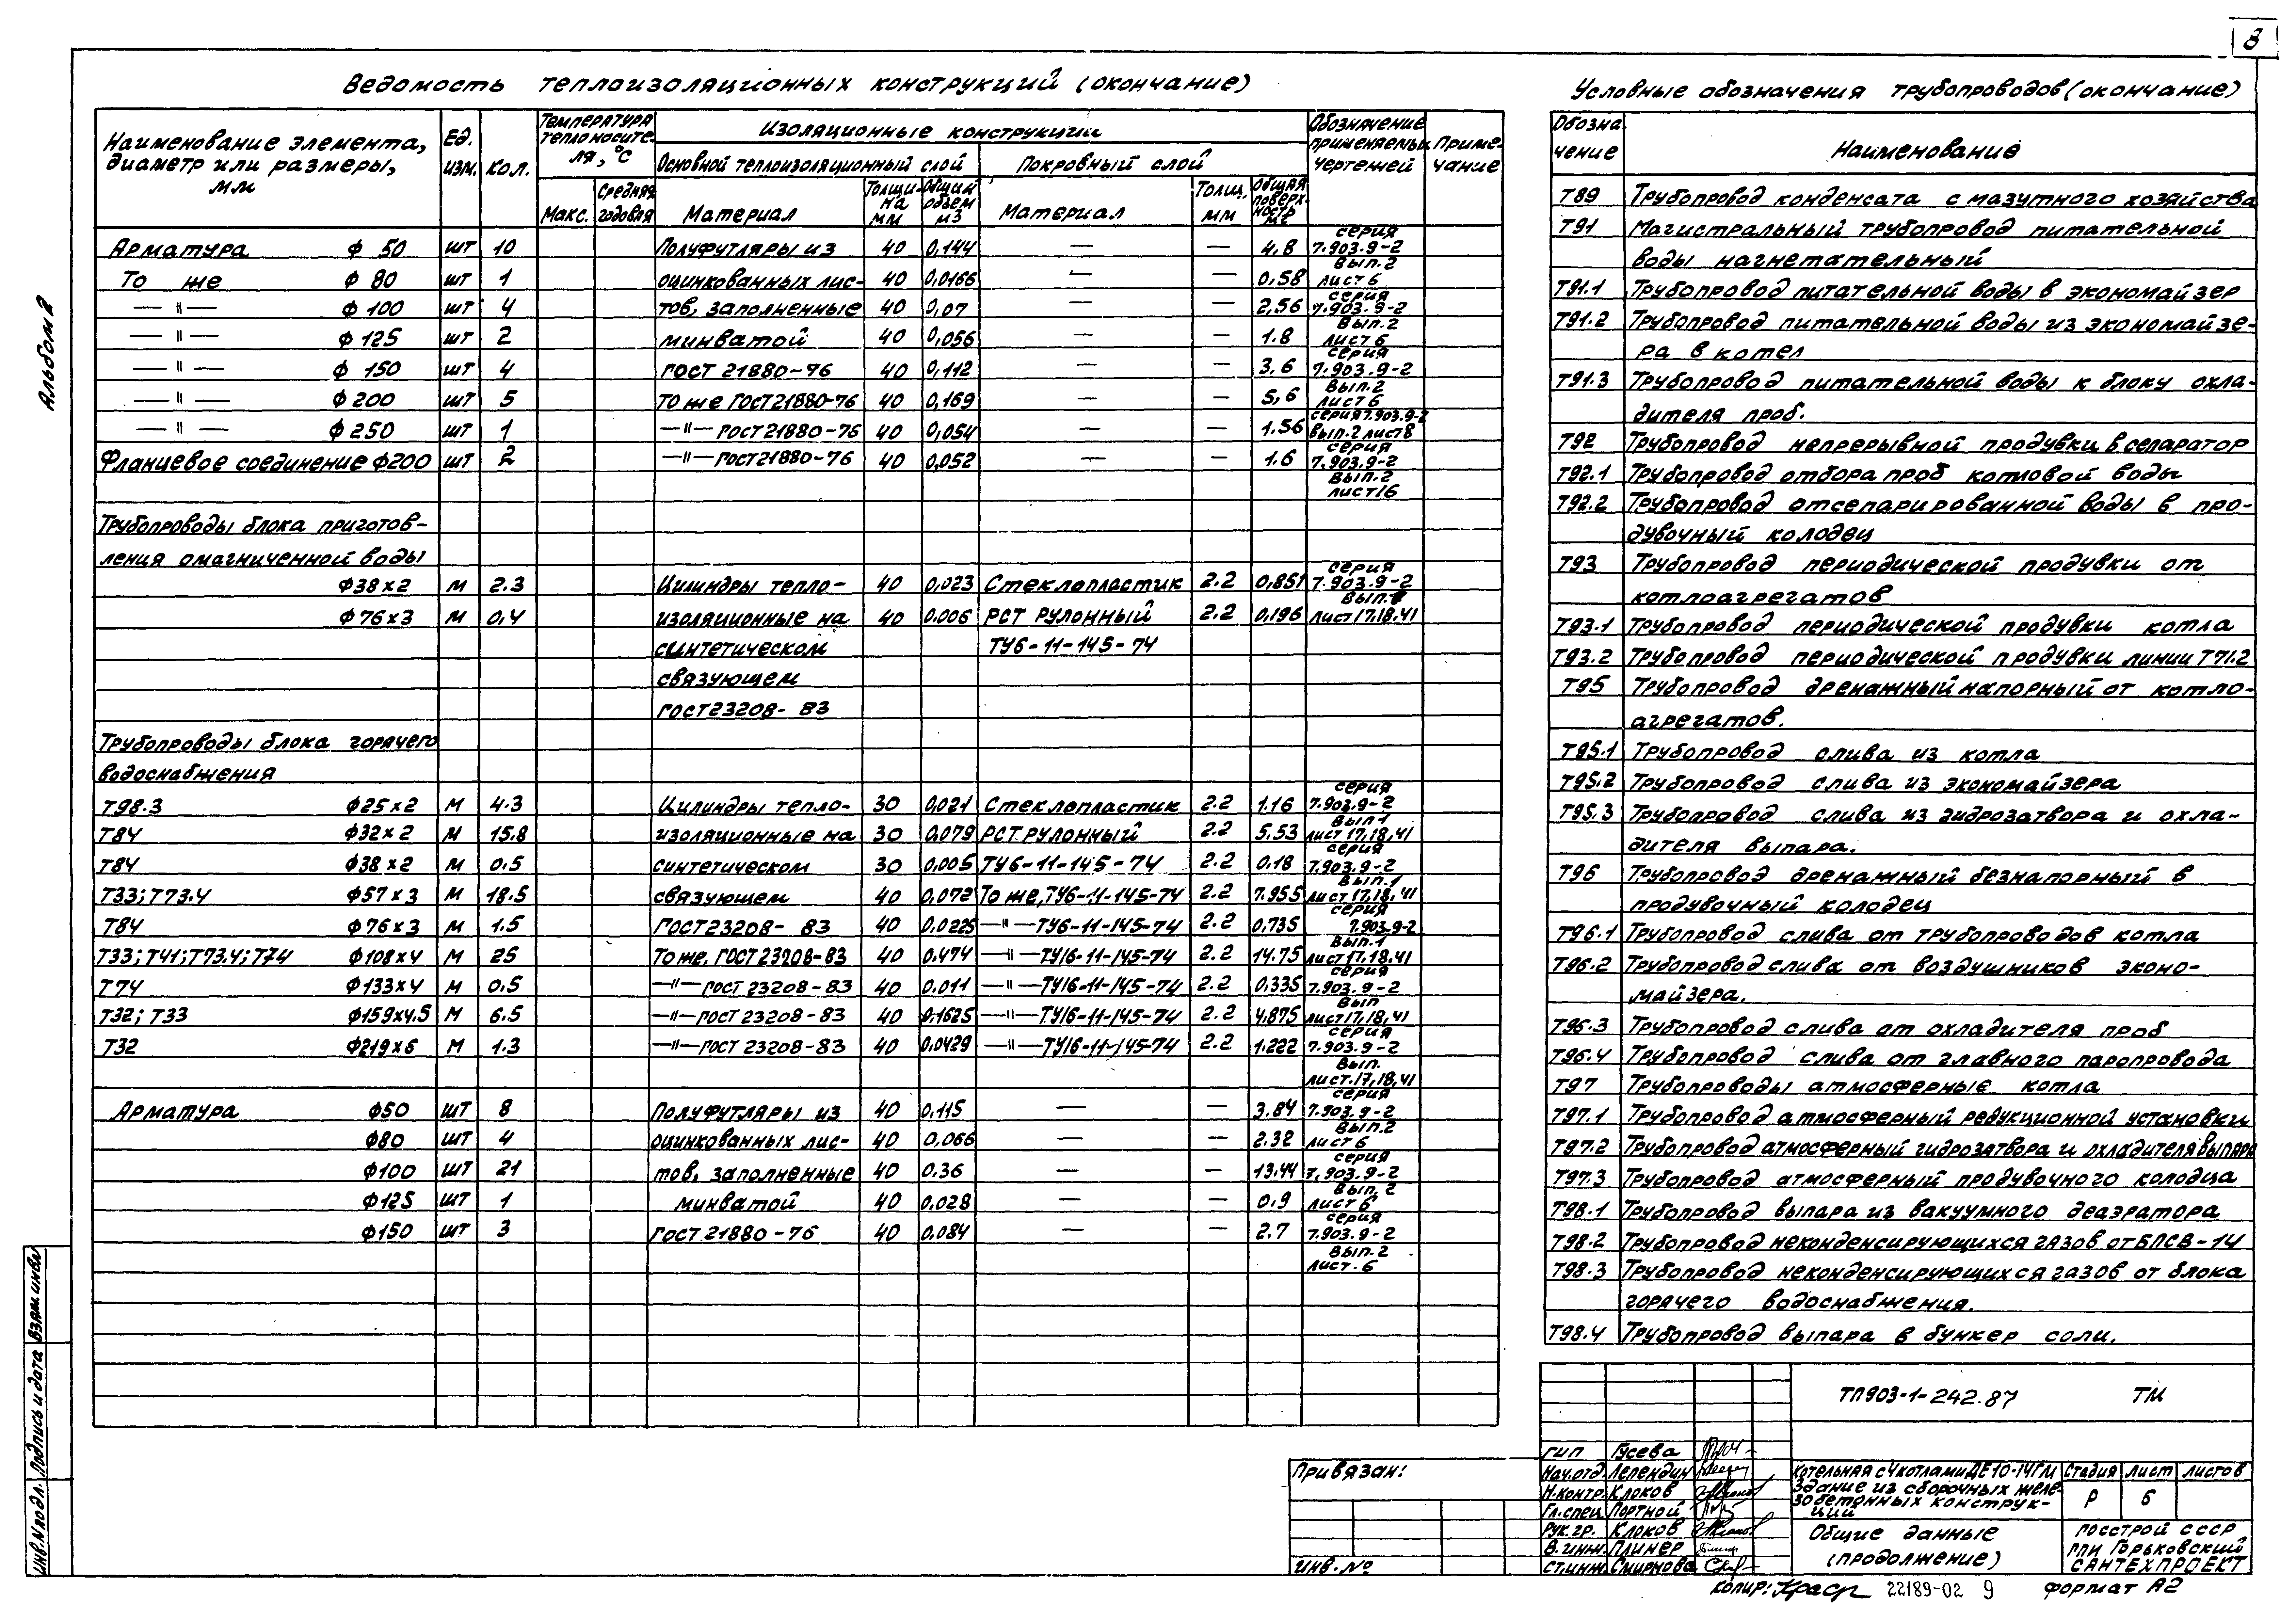 8
Альбом 2
Ведомость теплоизоляционных конструкций (окончание)
Наименование элемента, диаметр или размеры, мм
Ед. изм.
Кол.
Температура теплоносителя, °С
Макс.
Средняя годовая
Изоляционные конструкции
Основной теплоизоляционный слой
Покровный слой
Материал
Толщина мм
Общий объем м3
Материал
Толщ. мм
Общая поверхность м2
Обозначение применяемых чертежей
Примечание
Арматура ф 50 шт 10 Полуфутляры из 40 0,144 — — 4,8 серия 7.903.9-2
То же ф 80 шт 1 оцинкованных лис- 40 0,0166 — — 0,58 Вып.2 лист 6
—"— ф 100 шт 4 тов, заполненные 40 0,07 — — 2,56 серия 7.903.9-2
—"— ф 125 шт 2 минватой 40 0,056 — — 1.8 Вып.2 лист 6
—"— ф 150 шт 4 ГОСТ 21880-76 40 0,112 — — 3,6 серия 7.903.9-2
—"— ф 200 шт 5 То же ГОСТ 21880-76 40 0,169 — — 5,6 Вып.2 лист 6
—"— ф 250 шт 1 —"— ГОСТ 21880-76 40 0,054 — — 1.56 серия 7.903.9-2 вып.2 лист 8
Фланцевое соединение ф200 шт 2 —"— ГОСТ 21880-76 40 0,052 — — 1.6 серия 7.903.9-2
Вып.2
лист 16
Трубопроводы блока приготов-
ления омагниченной воды
ф38х2 м 2.3 Цилиндры тепло- 40 0,023 Стеклопластик 2.2 0,851 серия 7.903.9-2
ф76х3 м 0,4 изоляционные на 40 0.006 РСТ рулонный 2.2 0,196 Вып.1 лист 17,18,41
синтетическом ТУ6-11-145-74
связующем
ГОСТ 23208-83
Трубопроводы блока горячего
водоснабжения
Т98.3 ф25х2 м 4.3 Цилиндры тепло- 30 0,021 Стеклопластик 2.2 1.16 серия 7.903.9-2
Т84 ф32х2 м 15.8 изоляционные на 30 0,079 РСТ рулонный 2.2 5.53 Вып 1 лист 17,18,41
Т84 ф38х2 м 0.5 синтетическом 30 0,005 ТУ6-11-145-74 2.2 0.18 серия 7.903.9-2
Т33; Т73.4 ф57х3 м 18.5 связующем 40 0,072 То же, ТУ6-11-145-74 2.2 7.955 Вып.1 лист 17,18,41
Т84 ф76х3 м 1.5 ГОСТ 23208-83 40 0.0225 —"— ТУ6-11-145-74 2.2 0,735 серия 7.903.9-2
Т33; Т41; Т73.4; Т74 ф108х4 м 25 То же, ГОСТ 23208-83 40 0.474 —"— ТУ16-11-145-74 2.2 14.75 Вып.1 лист 17,18,41
Т74 ф133х4 м 0.5 —"— ГОСТ 23208-83 40 0.011 —"— ТУ16-11-145-74 2.2 0.335 серия 7.903.9-2
Т32; Т33 ф159х4.5 м 6.5 —"— ГОСТ 23208-83 40 0.1625 —"— ТУ16-11-145-74 2.2 4.875 Вып лист 17,18,41
Т32 ф219х6 м 1.3 —"— ГОСТ 23208-83 40 0.0429 —"— ТУ16-11-145-74 2.2 1.222 серия 7.903.9-2
Вып.
лист.17,18,41
Арматура ф50 шт 8 Полуфутляры из 40 0,115 — — 3.84 серия 7.903.9-2
ф80 шт 4 оцинкованных лис- 40 0,066 — — 2.32 Вып.2 лист 6
ф100 шт 21 тов, заполненные 40 0.36 — — 13.44 серия 7.903.9-2
ф125 шт 1 минватой 40 0.028 — — 0.9 Вып.2 лист 6
ф150 шт 3 ГОСТ 21880-76 40 0.084 — — 2.7 серия 7.903.9-2
Вып.2
лист.6
Условные обозначения трубопроводов (окончание)
Обозначение Наименование
Т89 Трубопровод конденсата с мазутного хозяйства
Т91 Магистральный трубопровод питательной
воды нагнетательный
Т91.1 Трубопровод питательной воды в экономайзер
Т91.2 Трубопровод питательной воды из экономайзе-
ра в котел
Т91.3 Трубопровод питательной воды к блоку охла-
дителя проб.
Т92 Трубопровод непрерывной продувки в сепаратор
Т92.1 Трубопровод отбора проб котловой воды
Т92.2 Трубопровод отсепарированной воды в про-
дувочный колодец
Т93 Трубопровод периодической продувки от
котлоагрегатов
Т93.1 Трубопровод периодической продувки котла
Т93.2 Трубопровод периодической продувки линии Т71.2
Т95 Трубопровод дренажный напорный от котло-
агрегатов.
Т95.1 Трубопровод слива из котла
Т95.2 Трубопровод слива из экономайзера
Т95.3 Трубопровод слива из гидрозатвора и охла-
дителя выпара.
Т96 Трубопровод дренажный безнапорный в
продувочный колодец
Т96.1 Трубопровод слива от трубопроводов котла
Т96.2 Трубопровод слива от воздушников эконо-
майзера.
Т96.3 Трубопровод слива от охладителя проб
Т96.4 Трубопровод слива от главного паропровода
Т97 Трубопроводы атмосферные котла
Т97.1 Трубопровод атмосферный редукционной установки
Т97.2 Трубопровод атмосферный гидрозатвора и охладителя выпара
Т97.3 Трубопровод атмосферный продувочного колодца
Т98.1 Трубопровод выпара из вакуумного деаэратора
Т98.2 Трубопровод неконденсирующихся газов от БПСВ-14
Т98.3 Трубопровод неконденсирующихся газов от блока
горячего водоснабжения.
Т98.4 Трубопровод выпара в бункер соли.
ТП903-1-242.87 ТМ
ГИП Гусева
Нач.отд. Лепендин
Н.контр. Клоков
Гл.спец Портной
Рук.гр. Клоков
В.инж. Плинер
Ст.инж. Смирнова
Котельная с 4 котлами ДЕ10-14ГМ
Здание из сборочных желе-
зобетонных конструк-
ций
Стадия Лист Листов
Р 6
Общие данные
(продолжение)
Госстрой СССР
ГПИ Горьковский
САНТЕХПРОЕКТ
Привязан:
Инв.№
Инв.№подл. Подпись и дата Взам.инв№
Копир: Краср 22189-02 9 формат А2